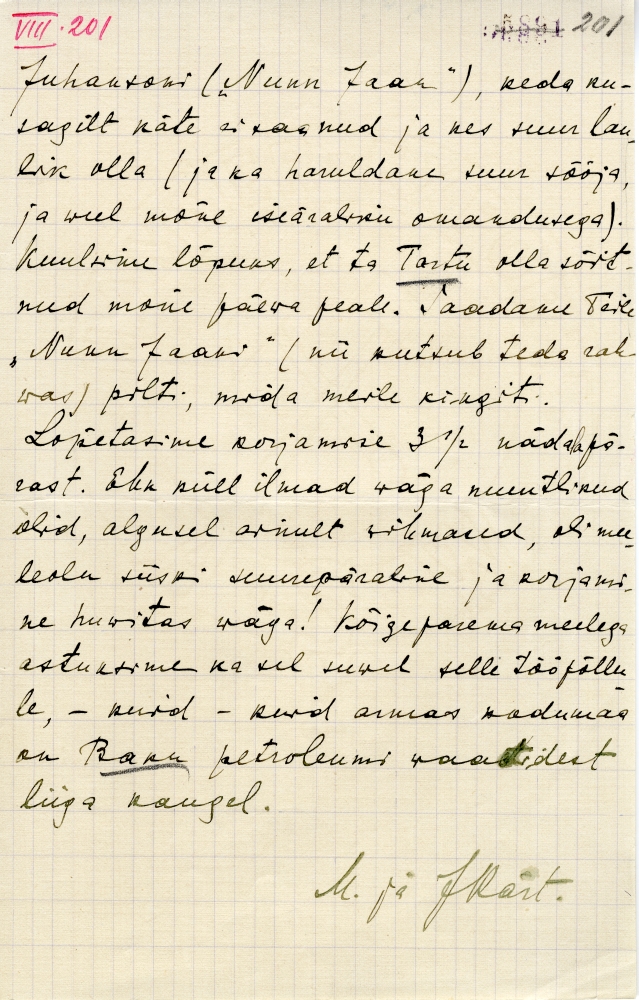 VIII. 201
201
Juhansoni („Nunn Jaan"), keda ku-
sagilt käte ei saanud ja kes suur lau-
lik olla (ja ka haruldane suur sööja,
ja weel mõne iseäraliku omandusega).
Kuulsime lõpuks, et ta Tartu olla sõit-
nud mõne päewa peale. Saadame Teile
„Nunn Jaani" (nii kutsub teda rah-
was) pilti, mida meile kingiti.
Lõpetasime korjamise 3 1/2 nädalapä-
rast. Ehk küll ilmad wäga muutlikud
olid, algusel ainult wihmased, oli mee-
leolu siiski suurepäraline ja korjami-
ne huwitas wäga! Kõige parema meelega
astuksime ka sel suwel selle tööpõllu-
le, - kuid - kuid armas kodumaa
on Baku petroleumi waatidest
liiga kaugel.
M. ja J Kärt.